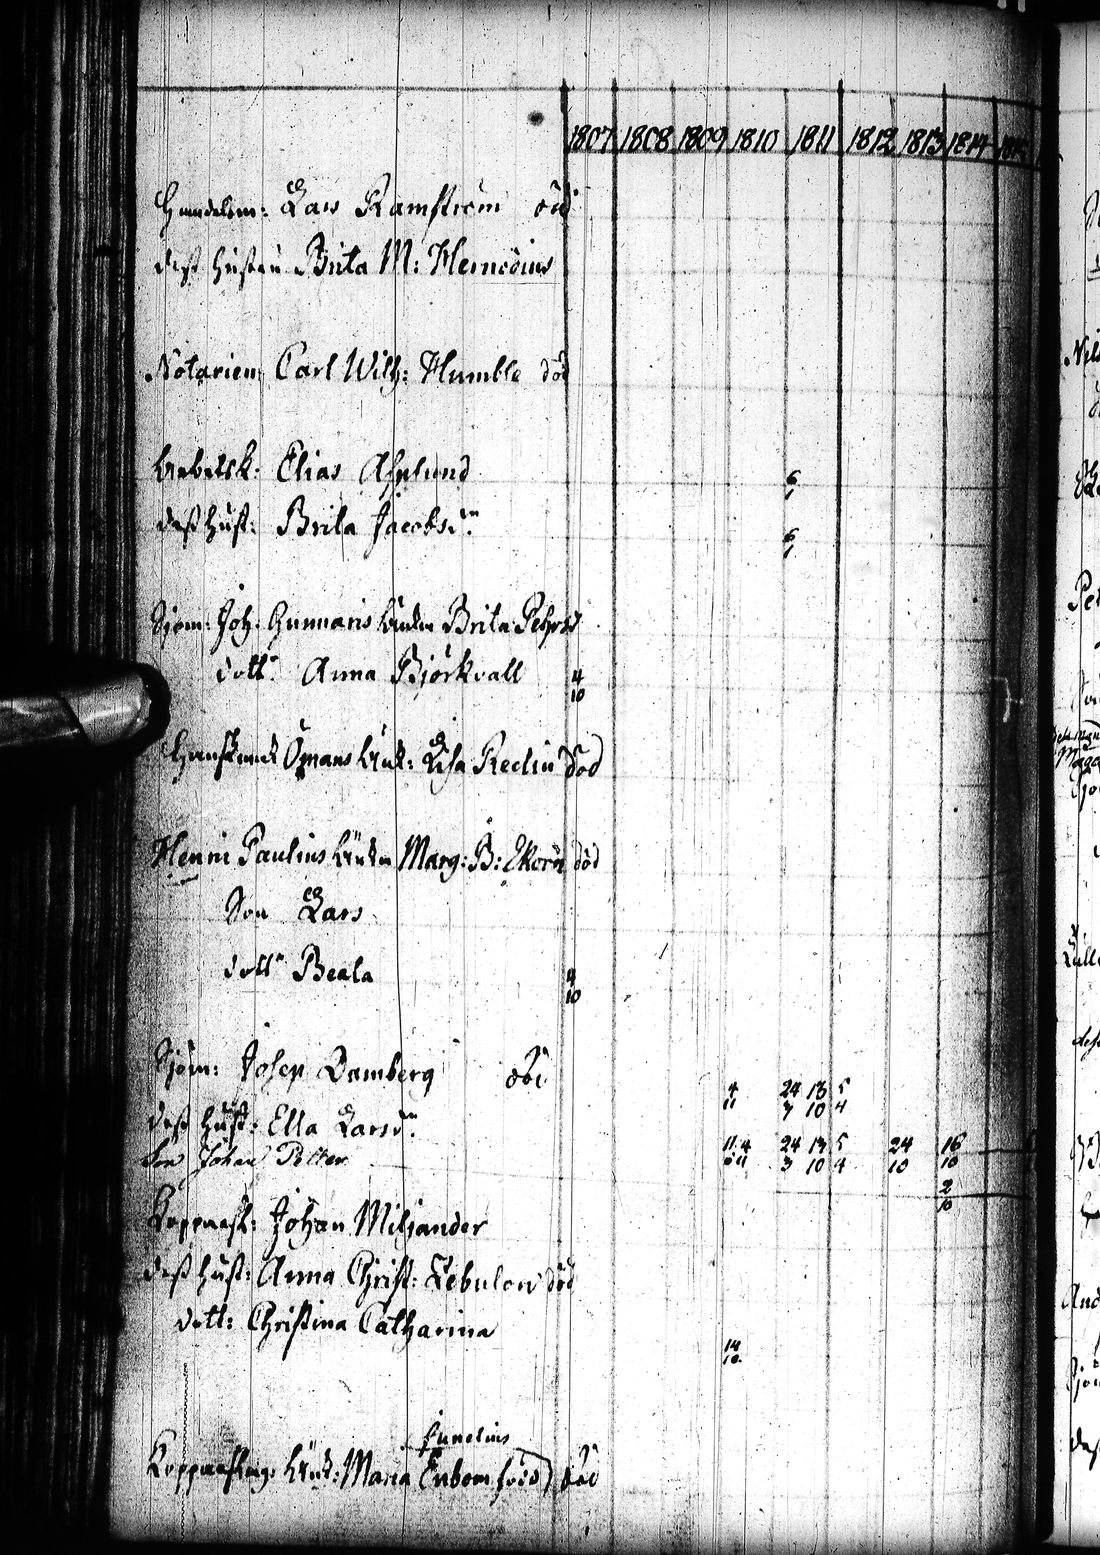 1807 1808 1809 1810 1811 1812 1813 1814
Handelsm: Lars Ramström död
dess hustru Brita M: Hernodius
Notarien Carl Wilh: Humble död
Arbetsk: Elias Asplund 6/1
dess hust: Brita Jacobsdn 6/1
Sjöm: Joh: Gunnaris Enkan Brita Pehrsd
dottr Anna Björkvall 4/10
Öhmans Enk: Lisa Reclin död
Henri Paulins Enkan Marg: B: Ekorn död
Son Lars
dottr Beata 4/10
Sjöm: Josep Damberg död 4/11 24/3 13/10 5/4
dess hust: Ella Larsdn.
Son Johan Petter 11 4/11 24/3 13/10 5/4 24/10 16/10
2/10
Kopparsl: Johan Miljander
dess hust: Anna Christ: Zebulon död
dott: Christina Catharina 14/10
Junelius
Kopparslag: Enk: Maria Enbom född död